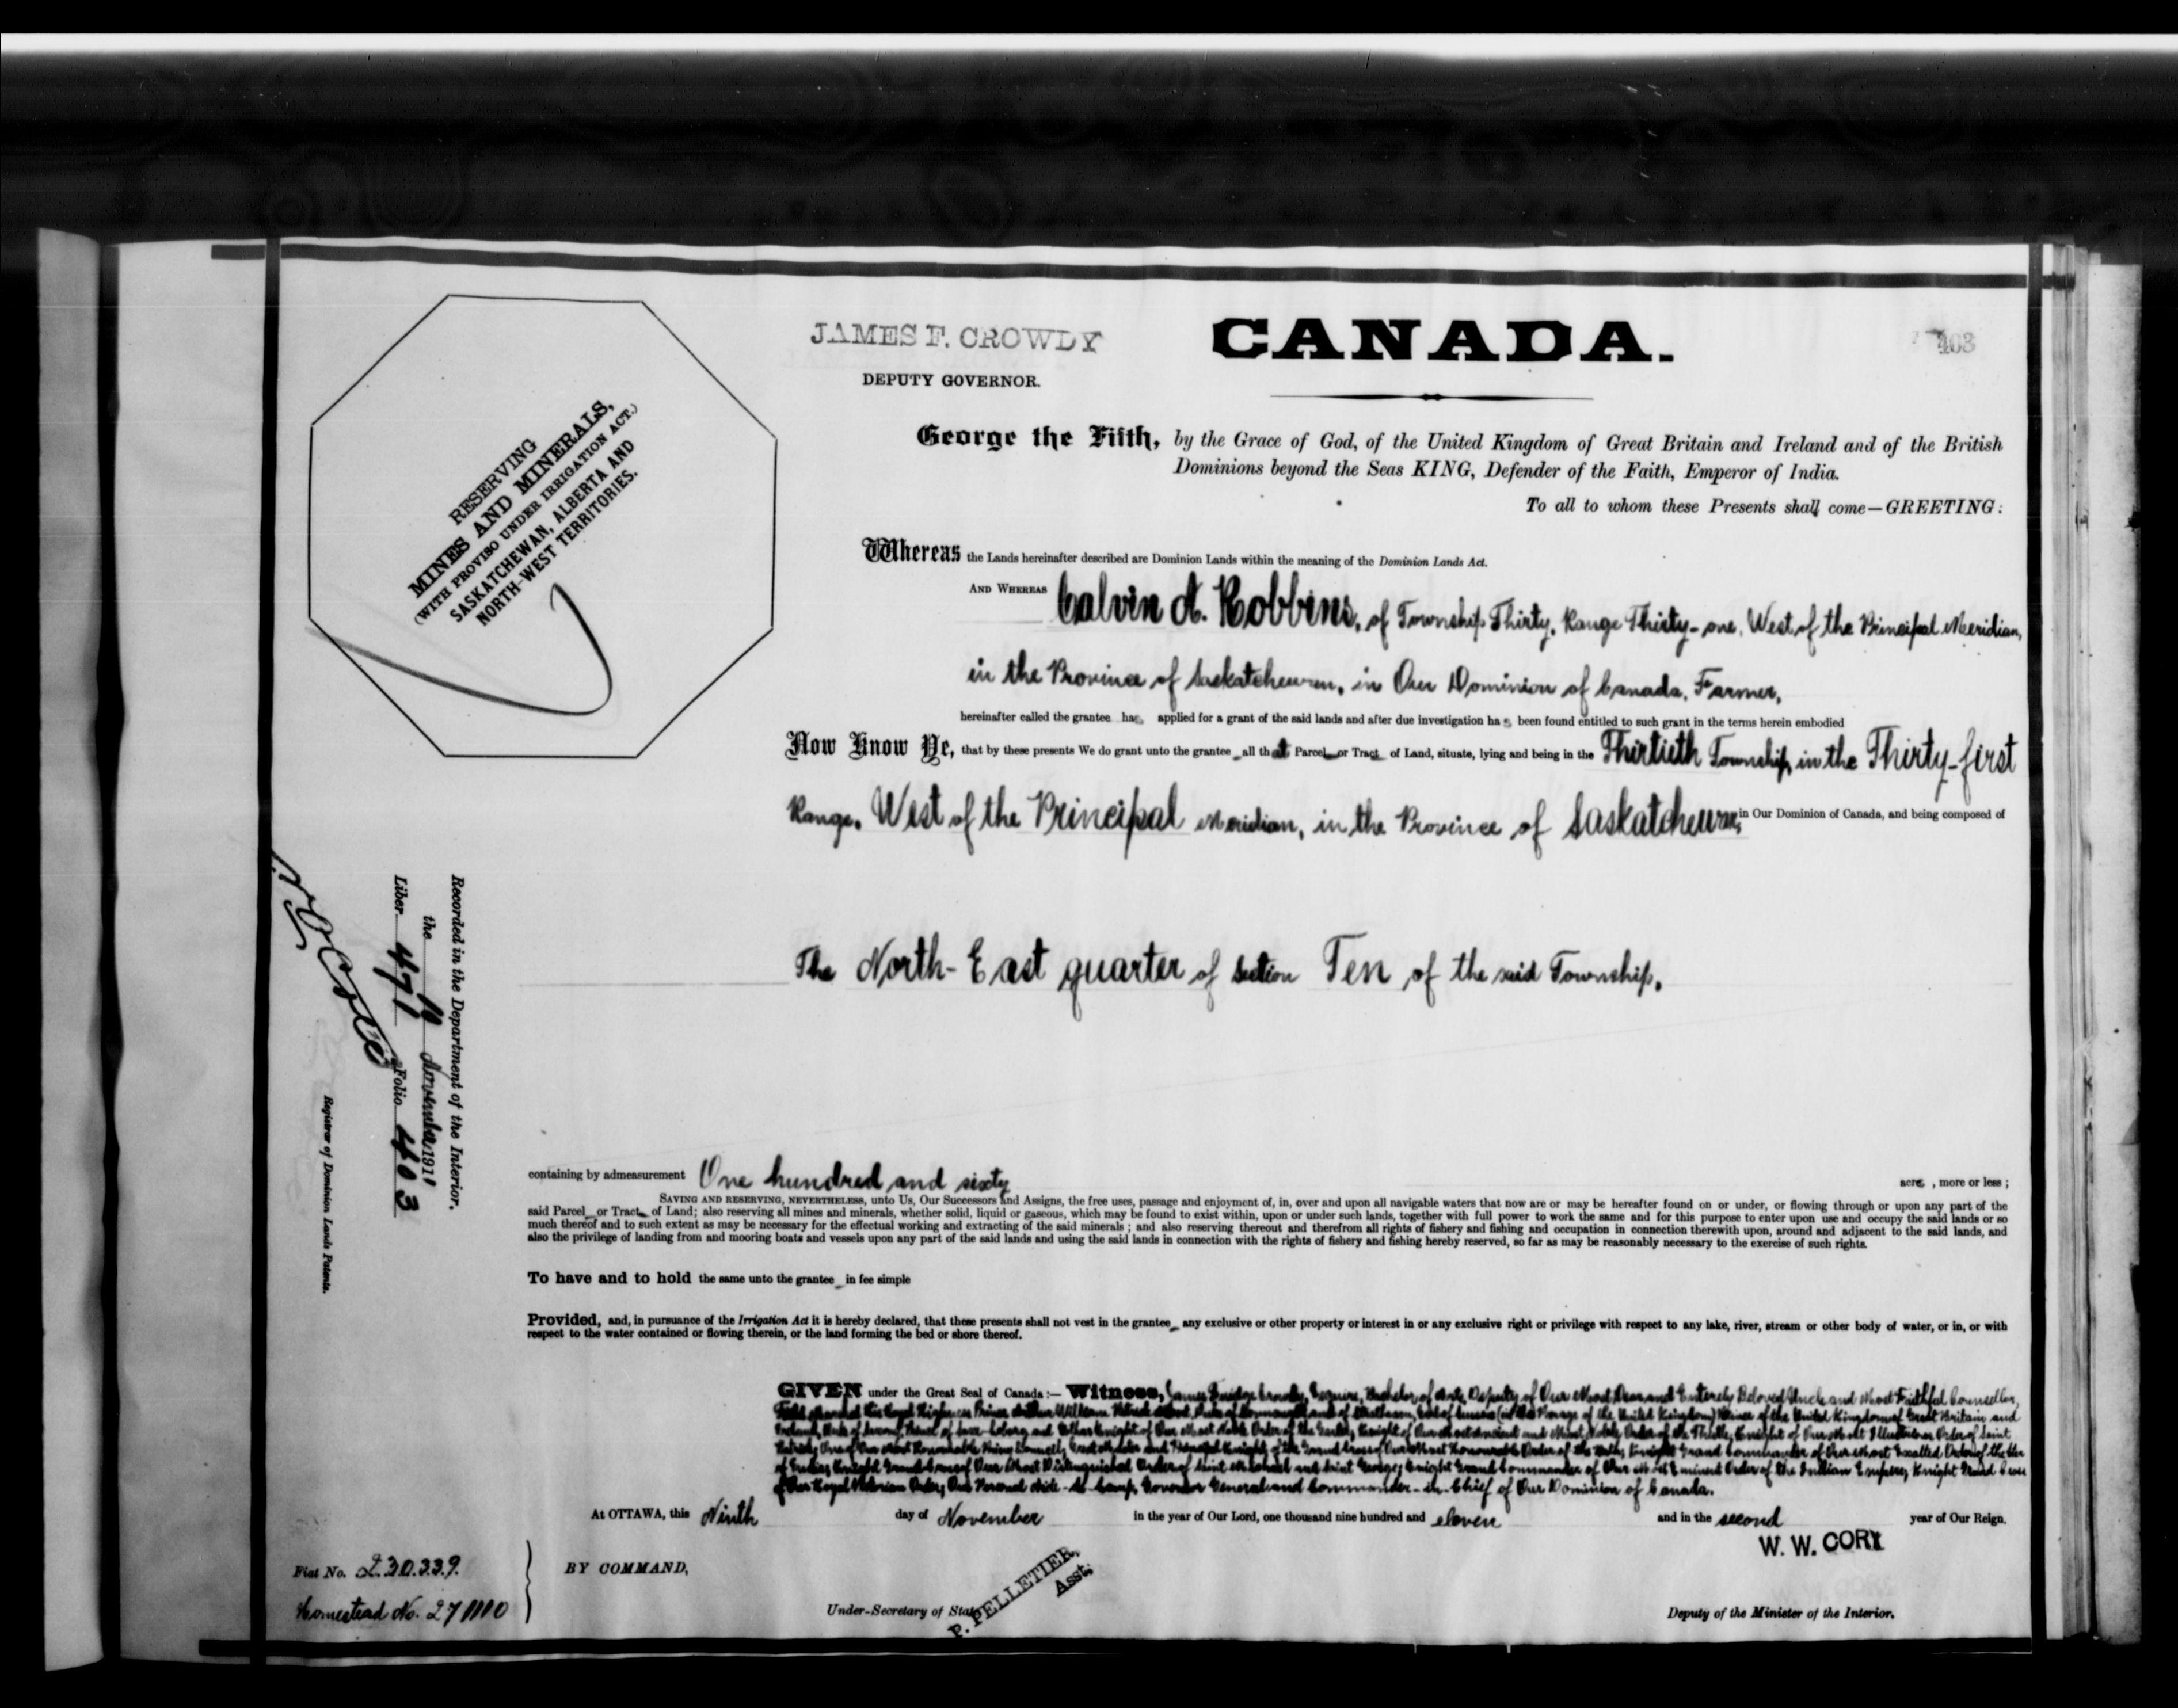 JAMES F. CROWDY
DEPUTY GOVERNOR.
CANADA.
403
RESERVING
MINES AND MINERALS,
(WITH PROVISO UNDER IRRIGATION ACT.)
SASKATCHEWAN, ALBERTA AND
NORTH-WEST TERRITORIES.
George the Fifth, by the Grace of God, of the United Kingdom of Great Britain and Ireland and of the British
Dominions beyond the Seas KING, Defender of the Faith, Emperor of India.
To all to whom these Presents shall come—GREETING:
Whereas the Lands hereinafter described are Dominion Lands within the meaning of the Dominion Lands Act.
AND WHEREAS Calvin A. Robbins, of Township Thirty, Range Thirty-one, West of the Principal Meridian,
in the Province of Saskatchewan, in Our Dominion of Canada, Farmer,
hereinafter called the grantee has applied for a grant of the said lands and after due investigation has been found entitled to such grant in the terms herein embodied
Now Know Ye, that by these presents We do grant unto the grantee all that Parcel or Tract of Land, situate, lying and being in the Thirtieth Township, in the Thirty-first
Range, West of the Principal Meridian, in the Province of Saskatchewan, in Our Dominion of Canada, and being composed of
The North-East quarter of Section Ten of the said Township.
Recorded in the Department of the Interior,
the November 1911
Liber 471 Folio 403
Registrar of Dominion Lands Patents.
containing by admeasurement One hundred and sixty acres, more or less;
SAVING AND RESERVING, NEVERTHELESS, unto Us, Our Successors and Assigns, the free uses, passage and enjoyment of, in, over and upon all navigable waters that now are or may be hereafter found on or under, or flowing through or upon any part of the
said Parcel or Tract of Land; also reserving all mines and minerals, whether solid, liquid or gaseous, which may be found to exist within, upon or under such lands, together with full power to work the same and for this purpose to enter upon use and occupy the said lands or so
much thereof and to such extent as may be necessary for the effectual working and extracting of the said minerals; and also reserving thereout and therefrom all rights of fishery and fishing and occupation in connection therewith upon, around and adjacent to the said lands, and
also the privilege of landing from and mooring boats and vessels upon any part of the said lands and using the said lands in connection with the rights of fishery and fishing hereby reserved, so far as may be reasonably necessary to the exercise of such rights.
To have and to hold the same unto the grantee in fee simple
Provided, and, in pursuance of the Irrigation Act it is hereby declared, that these presents shall not vest in the grantee any exclusive or other property or interest in or any exclusive right or privilege with respect to any lake, river, stream or other body of water, or in, or with
respect to the water contained or flowing therein, or the land forming the bed or shore thereof.
GIVEN under the Great Seal of Canada:— Witness, James Crowdy, Esquire, Bachelor of Arts, Deputy of Our Most Dear and Entirely Beloved Uncle and Most Faithful Counsellor,
Field Marshal His Royal Highness Prince Arthur William Patrick Albert, Duke of Connaught and of Strathearn, Earl of Sussex (in the Peerage of the United Kingdom) Prince of the United Kingdom of Great Britain and
Ireland, Duke of Saxony, Prince of Saxe-Coburg and Gotha; Knight of Our Most Noble Order of the Garter; Knight of Our Most Ancient and Most Noble Order of the Thistle; Knight of Our Most Illustrious Order of Saint
Patrick; One of Our Most Honourable Privy Council; Great Master and Principal Knight of the Grand Cross of Our Most Honourable Order of the Bath; Knight Grand Commander of Our Most Exalted Order of the Star
of India; Knight Grand Cross of Our Most Distinguished Order of Saint Michael and Saint George; Knight Grand Commander of Our Most Eminent Order of the Indian Empire; Knight Grand Cross
of Our Royal Victorian Order; Our Personal Aide-de-Camp, Governor General and Commander-in-Chief of Our Dominion of Canada.
At OTTAWA, this Ninth day of November in the year of Our Lord, one thousand nine hundred and eleven and in the second year of Our Reign.
Fiat No. 230339.
Homestead No.
BY COMMAND,
P. PELLETIER,
Asst:
Under-Secretary of State
W. W. CORY
Deputy of the Minister of the Interior.